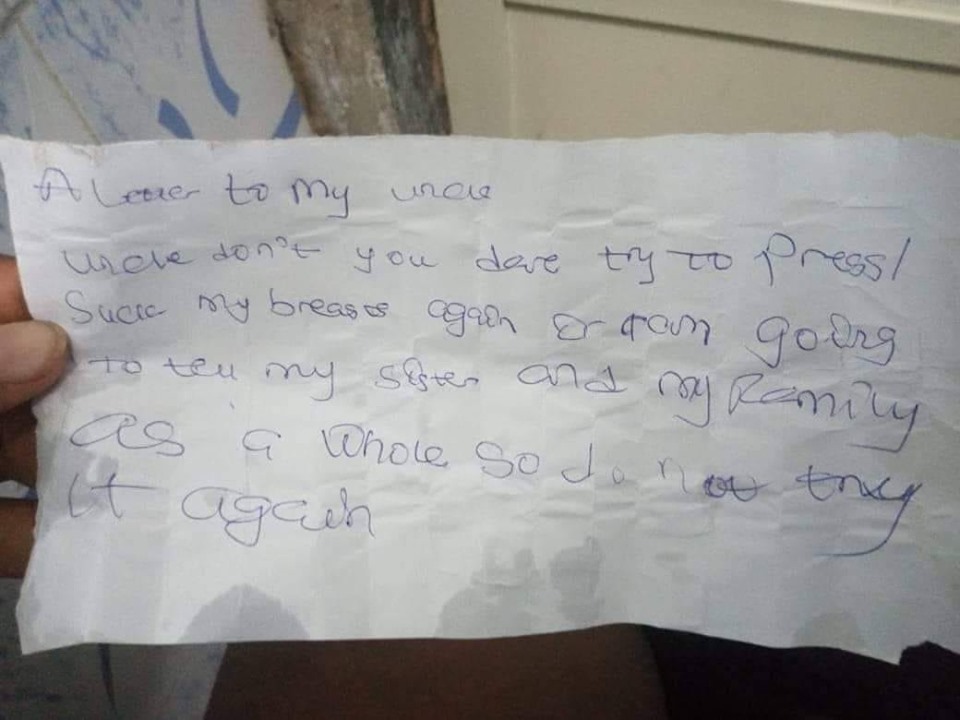 A Letter to my uncle
uncle don't you dare try to Press/
Suck my breasts again or I am going
to tell my sister and my Family
as a whole so do not try
It again